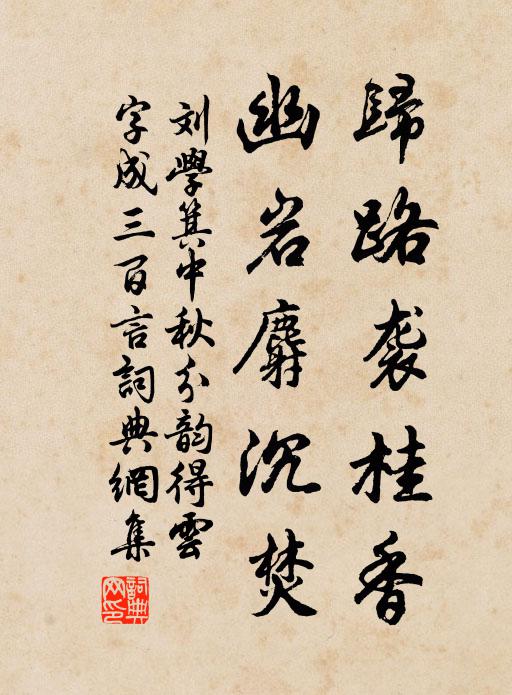 歸路袭桂香
幽岩麝沉焚
刘學箕中秋分韵得雲
字成三百言詞典網集
詞典網印